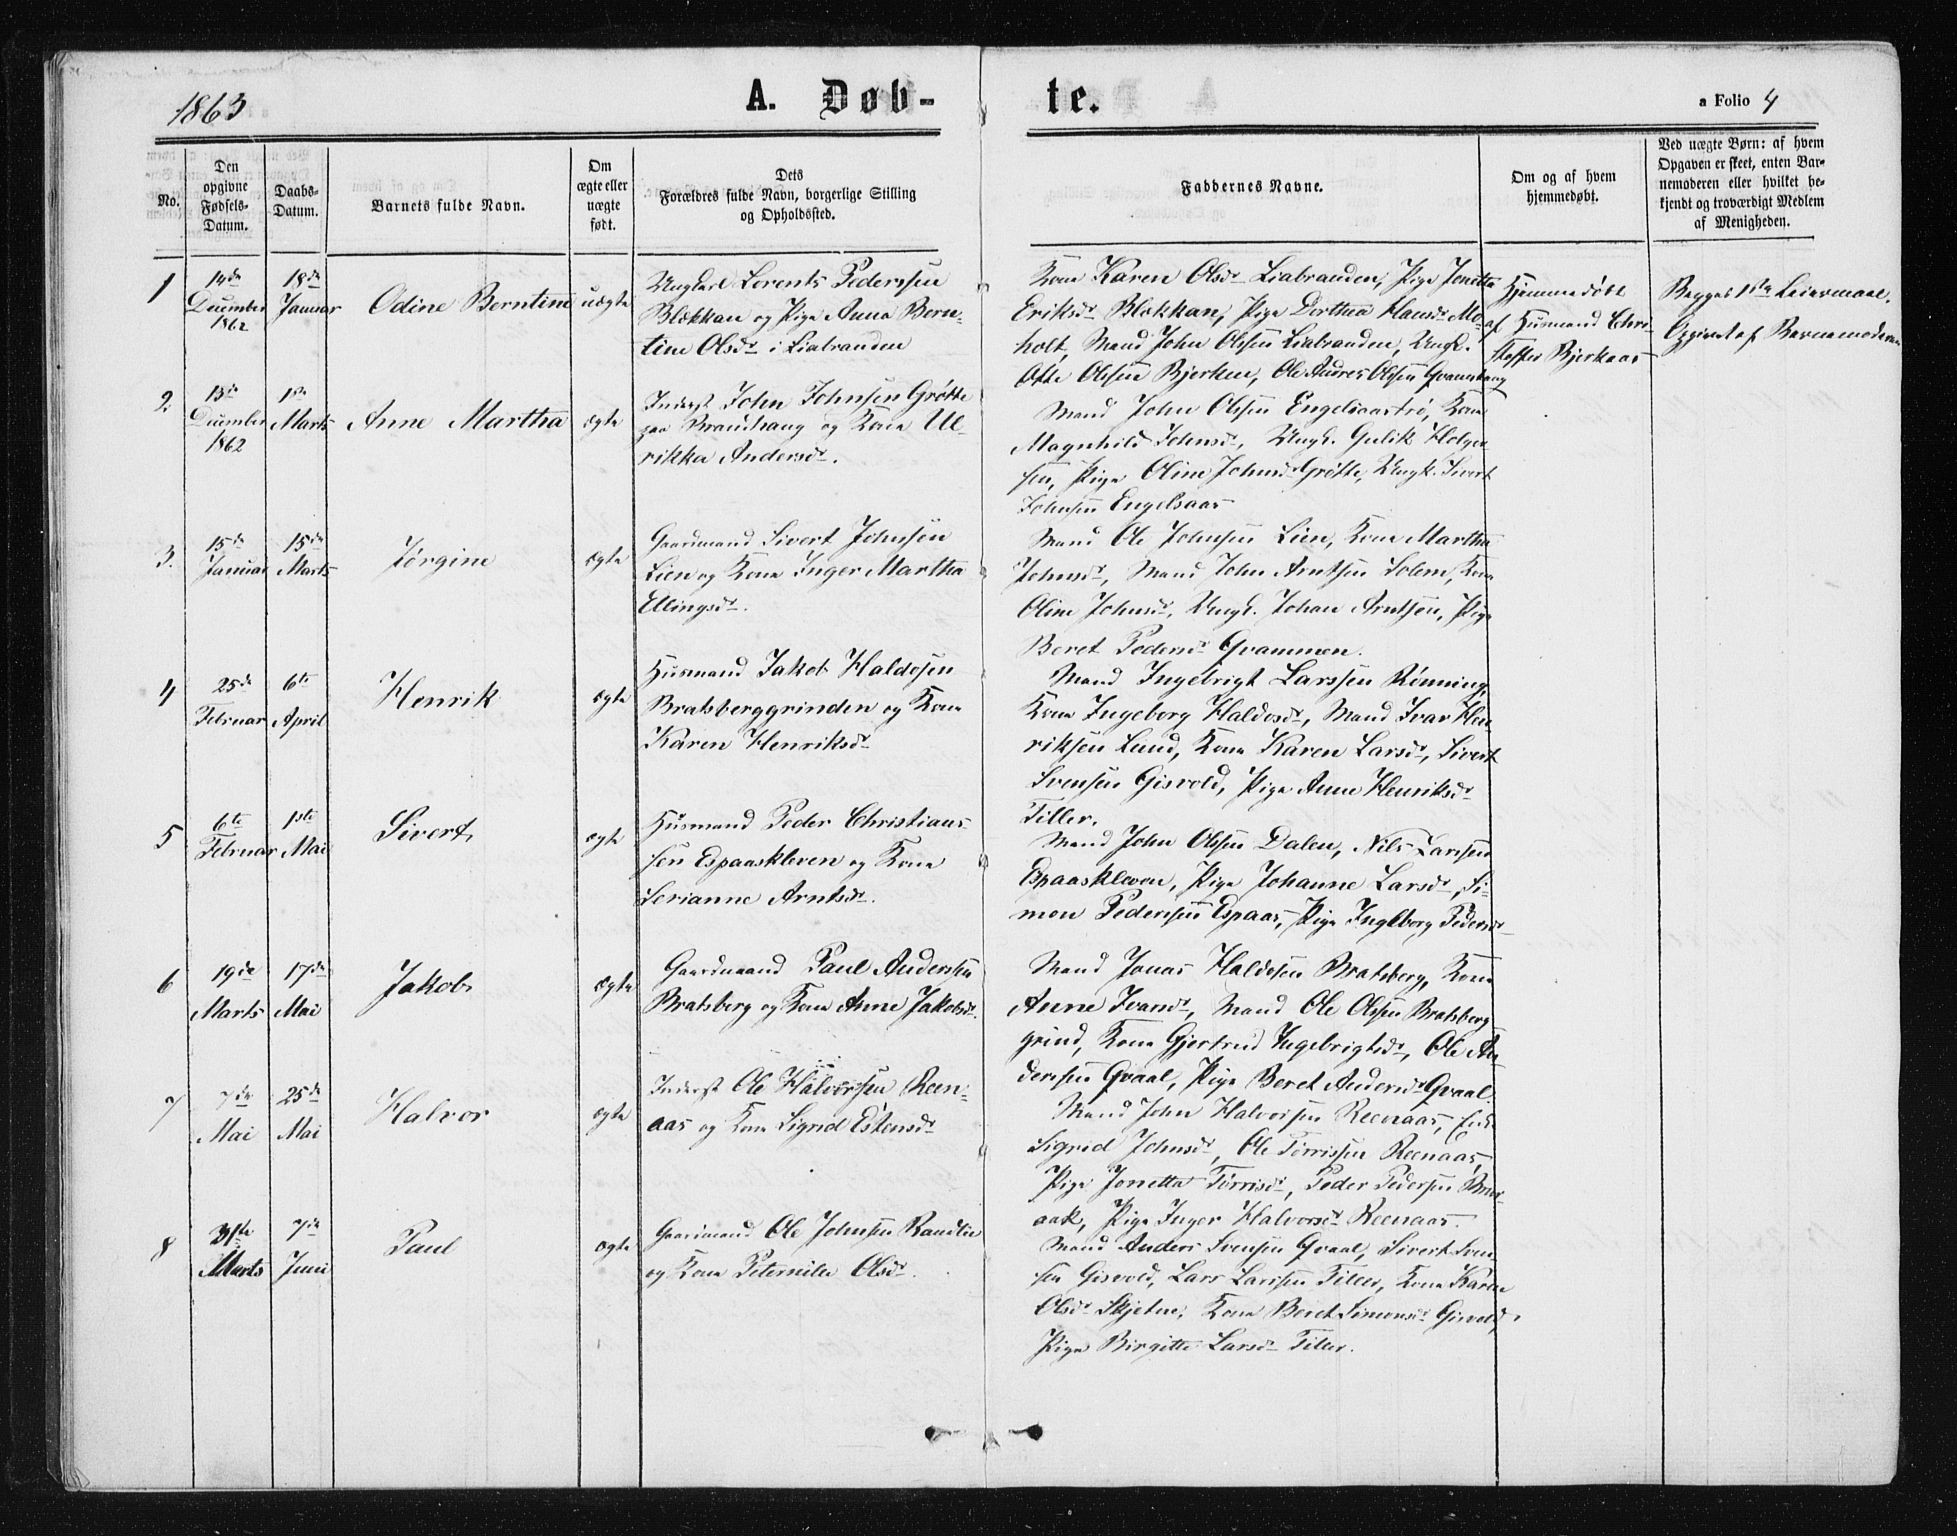 1863
A. Døb-
te.
a Folio 4
No.
Den opgivne Fødsels-Datum.
Daabs-Datum.
Barnets fulde Navn.
Om ægte eller uægte født.
Dets Forældres fulde Navn, borgerlige Stilling og Opholdssted.
Faddernes Navne.
Om og af hvem hjemmedøbt.
Ved uægte Børn: af hvem Opgaven er skeet, enten Barnemoderen eller hvilket bekjendt og troværdigt Medlem af Menigheden.
1
14de December 1862
18de Januar
Odine Berntine
uægte
Ungkarl Lorents Pederssen
Blekkan og Pige Anna Bern-
tine Olsdr i Liabranden
Kone Karen Olsdr Liabranden, Pige Jonetta
Eriksdr Blekkan, Pige Dorthea Hansdr Mo-
holt, Mand John Olssen Liabranden, Ungk.
Otte Olssen Bjerken, Ole Olssen
Hjemmedøbt
af Husmand Chri-
stoffer Bjerkaas
Begges 1ste Leiermaal.
Opgivet af Barnemoderen
2
13de December 1862
1ste Marts
Anne Martha
ægte
Inderst John Johnsen Grøtte
paa og Kone Ul-
rikka Andersdr.
Mand John Olssen Engelsaastrø, Kone
Magnhild Johnsdr, Ungk. Gulik Holge-
sen, Pige Oline Johnsdr Grøtte, Ungk. Sivert
Johnsen Engelsaas
3.
15de Januar
15de Marts
Jørgine
ægte
Gaardmand Sivert Johnsen
Lien og Kone Inger Martha
Ellingsdr.
Mand Ole Johnsen Lien, Kone Martha
Johnsdr, Mand John Arntsen Solem, Kone
Oline Johnsdr, Ungk. Johan Arntsen, Pige
Beret Pedersdr Qvammen.
4
25de Februar
6te April
Henrik
ægte
Husmand Jakob Haldosen
Bratsberggrinden og Kone
Karen Henriksdr
Mand Ingebrigt Larssen Rønning,
Kone Ingeborg Haldosdr, Mand Ivar Hen-
riksen Lund, Kone Karen Larsdr, Sivert
Svensen Gisvold, Pige Anne Henriksdr
Tiller.
5
6te Februar
1ste Mai
Sivert
ægte
Husmand Peder Christians-
sen Espaaskleven og Kone
Serianne Arntsdr.
Mand John Olssen Dalen, Nils Larssen
Espaaskleven, Pige Johanne Larsdr, Si-
mon Pederssen Espaas, Pige Ingeborg Pedersdr
6
19de Marts
17de Mai
Jakob
ægte
Gaardmand Paul Anderssen
Bratsberg og Kone Anne Jakobsdr.
Mand Jonas Haldosen Bratsberg, Kone
Anne Ivarsdr, Mand Ole Olssen Bratsberg-
grind, Kone Gjertrud Ingebrigtsdr, Ole An-
derssen Qvaal, Pige Beret Andersdr Qvaal.
7
7de Mai
25de Mai
Halvor
ægte
Inderst Ole Halvorsen Reen-
aas og Kone Sigrid Estensdr
Mand John Halvorsen Reenaas,
Sigrid Johnsdr, Ole Tørrissen Reenaas,
Pige Jonetta Tørrisdr, Peder Pedersen Bra-
aak, Pige Inger Halvorsdr Reenaas.
8
31te Marts
7de Juni
Paul
ægte
Gaardmand Ole Johnsen Randlie
og Kone Peternilla Olsdr.
Mand Anders Svensen Qvaal, Sivert Sven-
sen Gisvold, Lars Larssen Tiller, Kone Karen
Olsdr Skjetne, Kone Beret Simonsdr Gisvold,
Pige Birgitte Larsdr Tiller.